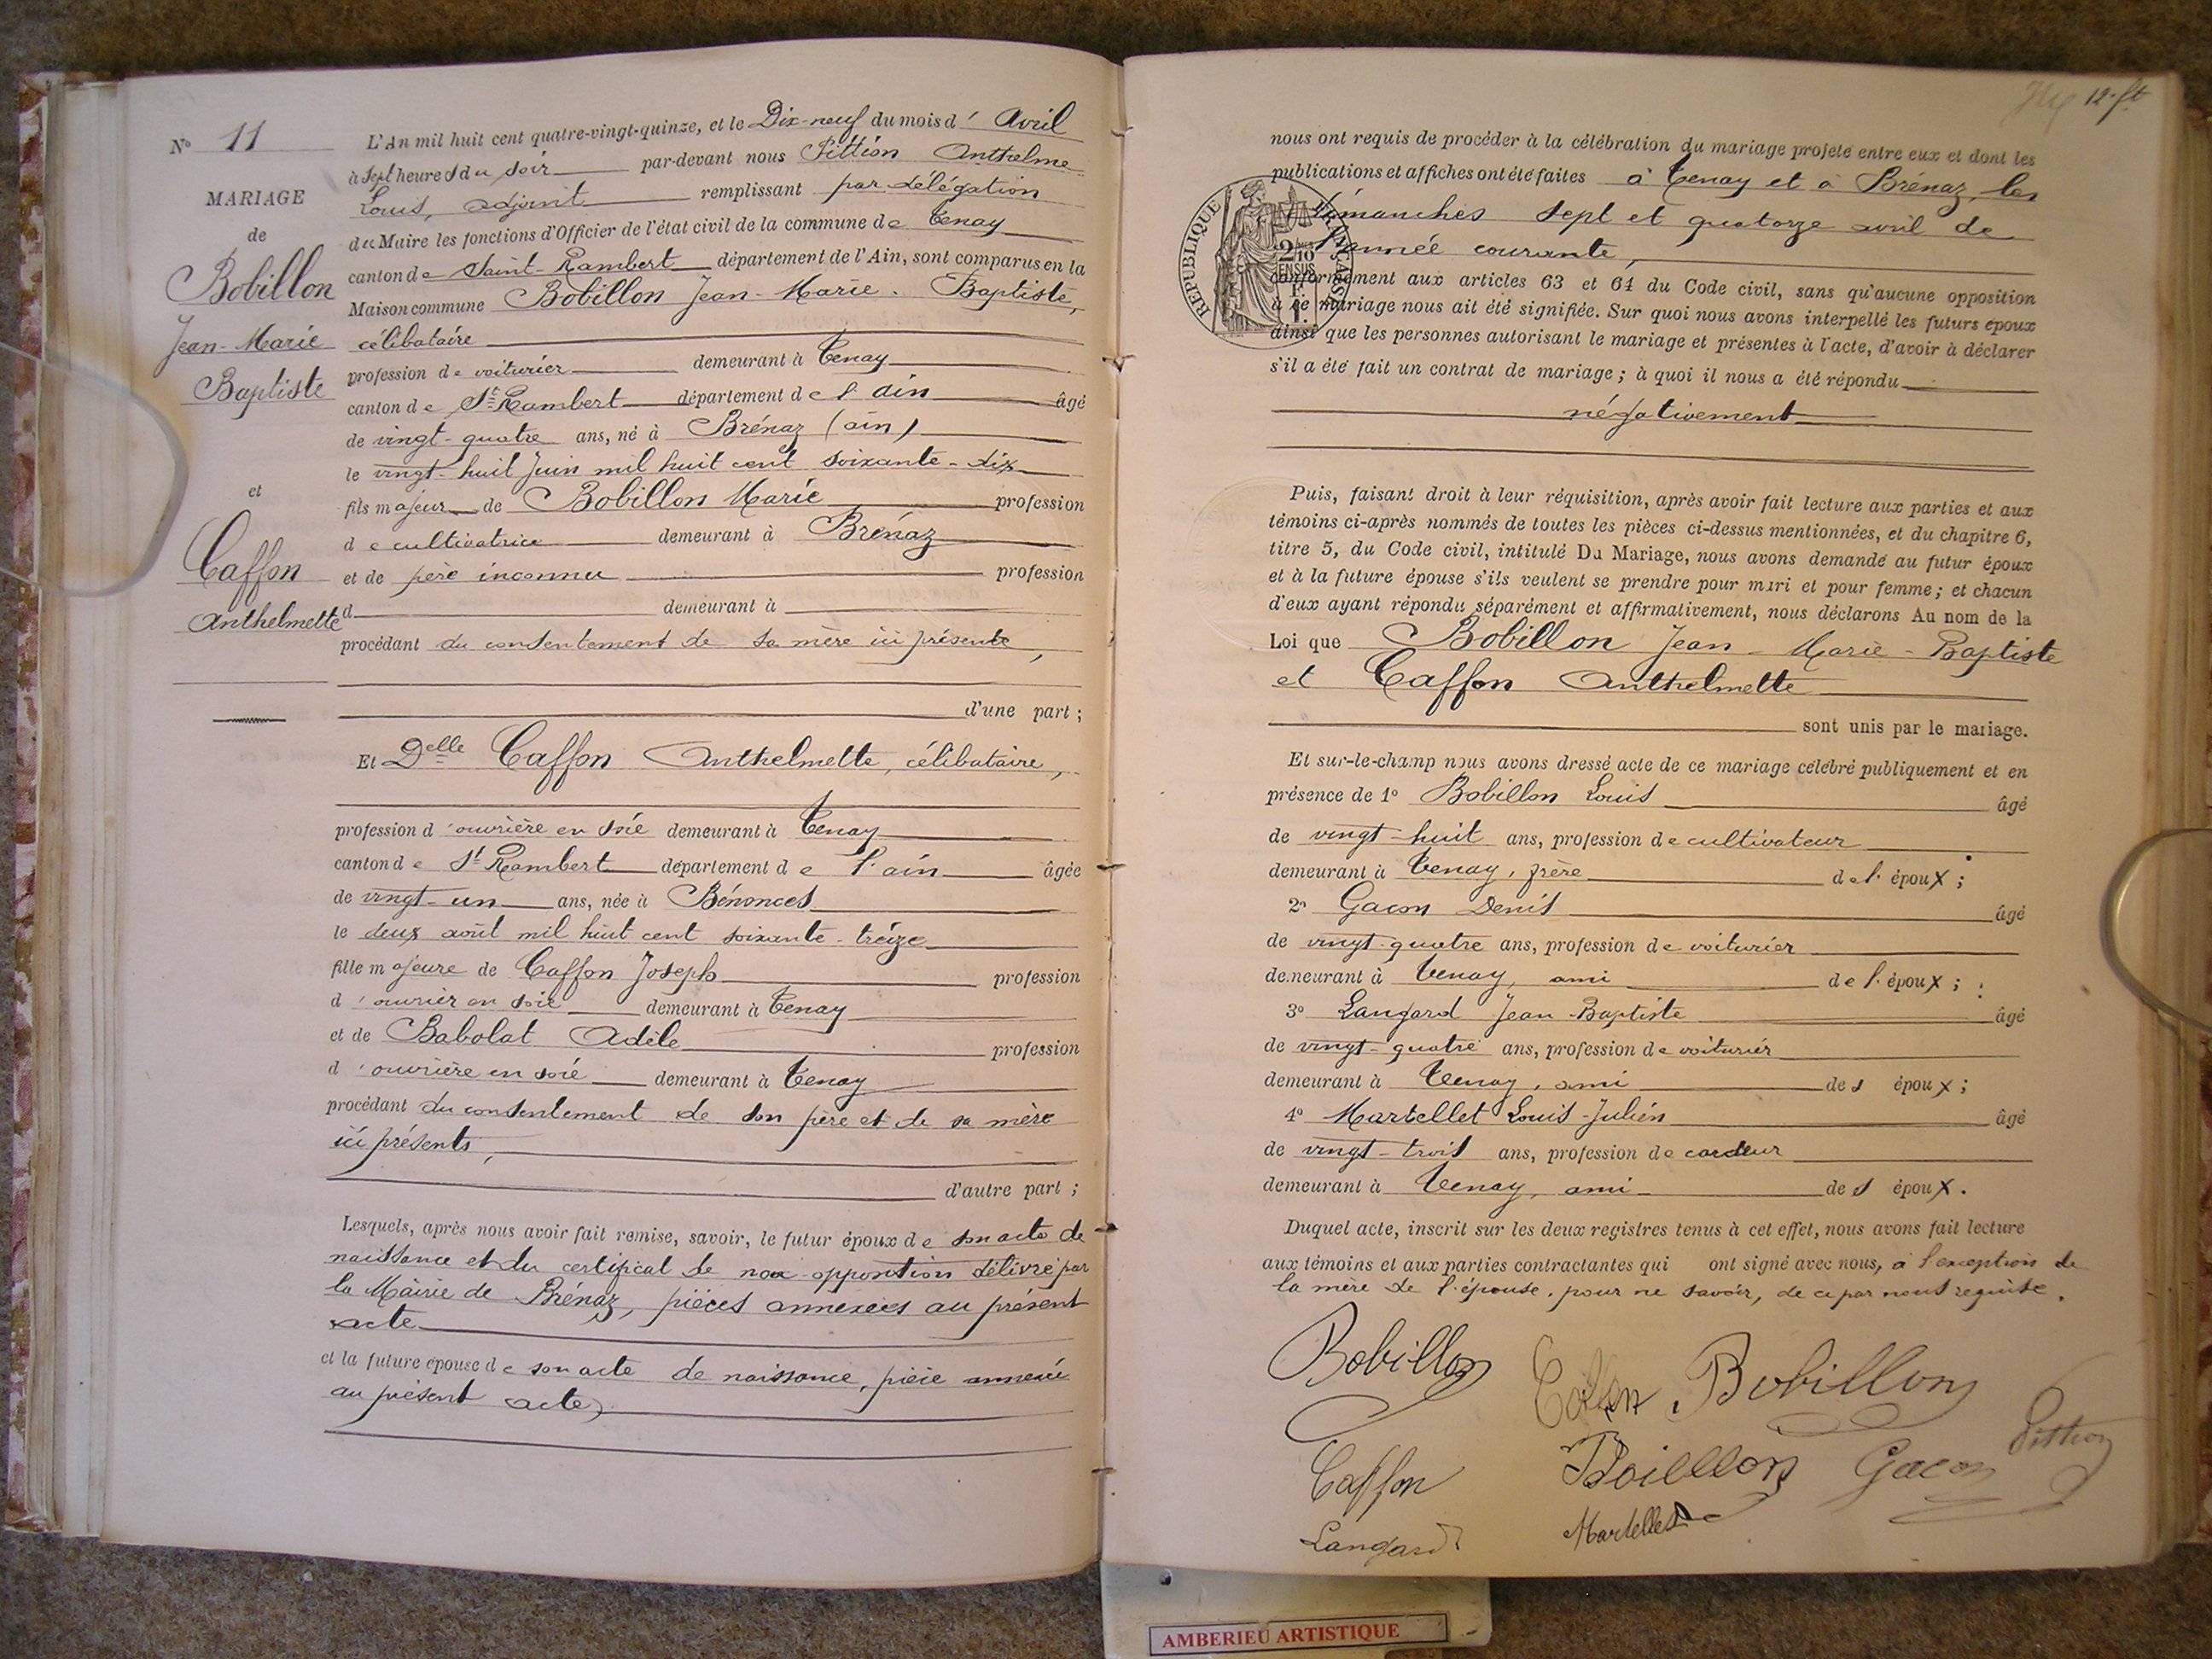 N° 11
MARIAGE
de
Bobillon
Jean-Marie
Baptiste
et
Caffon
Anthelmette
L'An mil huit cent quatre-vingt-quinze, et le Dix-neuf du mois d' Avril
à Sept heures du soir par-devant nous Pittion Anthelme
Louis, adjoint remplissant par délégation
du Maire les fonctions d'Officier de l'état civil de la commune de Tenay
canton de Saint-Rambert département de l'Ain, sont comparus en la
Maison commune Bobillon Jean-Marie-Baptiste,
célibataire
profession de voiturier demeurant à Tenay
canton de St Rambert département de l'ain âgé
de vingt-quatre ans, né à Brénaz (ain)
le vingt-huit Juin mil huit cent soixante-dix
fils majeur de Bobillon Marie profession
de cultivatrice demeurant à Brénaz
et de père inconnu profession
d demeurant à
procédant du consentement de sa mère ici présente,
d'une part ;
Et Delle Caffon Anthelmette, célibataire,
profession d'ouvrière en soie demeurant à Tenay
canton de St Rambert département de l'ain âgée
de vingt-un ans, née à Bénonces
le deux août mil huit cent soixante-treize
fille majeure de Caffon Joseph profession
d'ouvrier en soie demeurant à Tenay
et de Babolat Adèle profession
d'ouvrière en soie demeurant à Tenay
procédant du consentement de son père et de sa mère
ici présents,
d'autre part ;
Lesquels, après nous avoir fait remise, savoir, le futur époux de son acte de
naissance et du certificat de non-opposition délivré par
la Mairie de Brénaz, pièces annexées au présent
acte
et la future épouse de son acte de naissance, pièce annexée
au présent acte,
12 ft
nous ont requis de procéder à la célébration du mariage projeté entre eux et dont les
publications et affiches ont été faites à Tenay et à Brénaz, les
dimanches sept et quatorze avril de
l'année courante,
conformément aux articles 63 et 64 du Code civil, sans qu'aucune opposition
à ce mariage nous ait été signifiée. Sur quoi nous avons interpellé les futurs époux
ainsi que les personnes autorisant le mariage et présentes à l'acte, d'avoir à déclarer
s'il a été fait un contrat de mariage ; à quoi il nous a été répondu
négativement
RÉPUBLIQUE FRANÇAISE
Puis, faisant droit à leur réquisition, après avoir fait lecture aux parties et aux
témoins ci-après nommés de toutes les pièces ci-dessus mentionnées, et du chapitre 6,
titre 5, du Code civil, intitulé Du Mariage, nous avons demandé au futur époux
et à la future épouse s'ils veulent se prendre pour mari et pour femme ; et chacun
d'eux ayant répondu séparément et affirmativement, nous déclarons Au nom de la
Loi que Bobillon Jean-Marie-Baptiste
et Caffon Anthelmette
sont unis par le mariage.
Et sur-le-champ nous avons dressé acte de ce mariage célébré publiquement et en
présence de 1° Bobillon Louis âgé
de vingt-huit ans, profession de cultivateur
demeurant à Tenay, frère de l'époux ;
2° Gacon Denis âgé
de vingt-quatre ans, profession de voiturier
demeurant à Tenay, ami de l'époux ;
3° Langard Jean-Baptiste âgé
de vingt-quatre ans, profession de voiturier
demeurant à Tenay, ami des époux ;
4° Martellet Louis-Julien âgé
de vingt-trois ans, profession de cardeur
demeurant à Tenay, ami des époux.
Duquel acte, inscrit sur les deux registres tenus à cet effet, nous avons fait lecture
aux témoins et aux parties contractantes qui ont signé avec nous, à l'exception de
la mère de l'épouse, pour ne savoir, de ce par nous requise.
Bobillon
Bobillon
Pittion
Caffon
Gacon
Langard
Martellet
AMBERIEU ARTISTIQUE